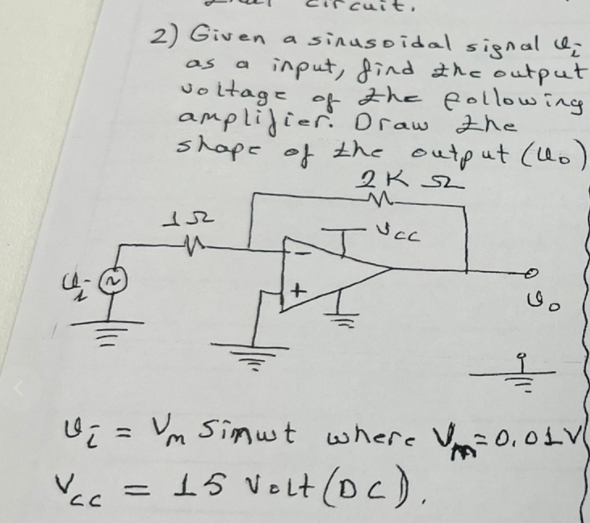 circuit.
2) Given a sinusoidal signal vi
as a input, find the output
voltage of the following
amplifier. Draw the
shape of the output (vo)
2K Ω
1Ω
Vcc
vi
~
-
+
vo
vi = Vm sinwt where Vm=0.01V
Vcc = 15 Volt (DC).